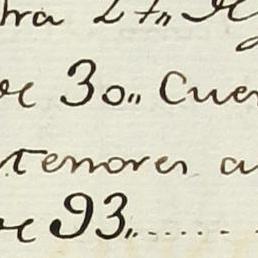 tra 27,, 
de 30,, Cue
tenores a
de 93,,......